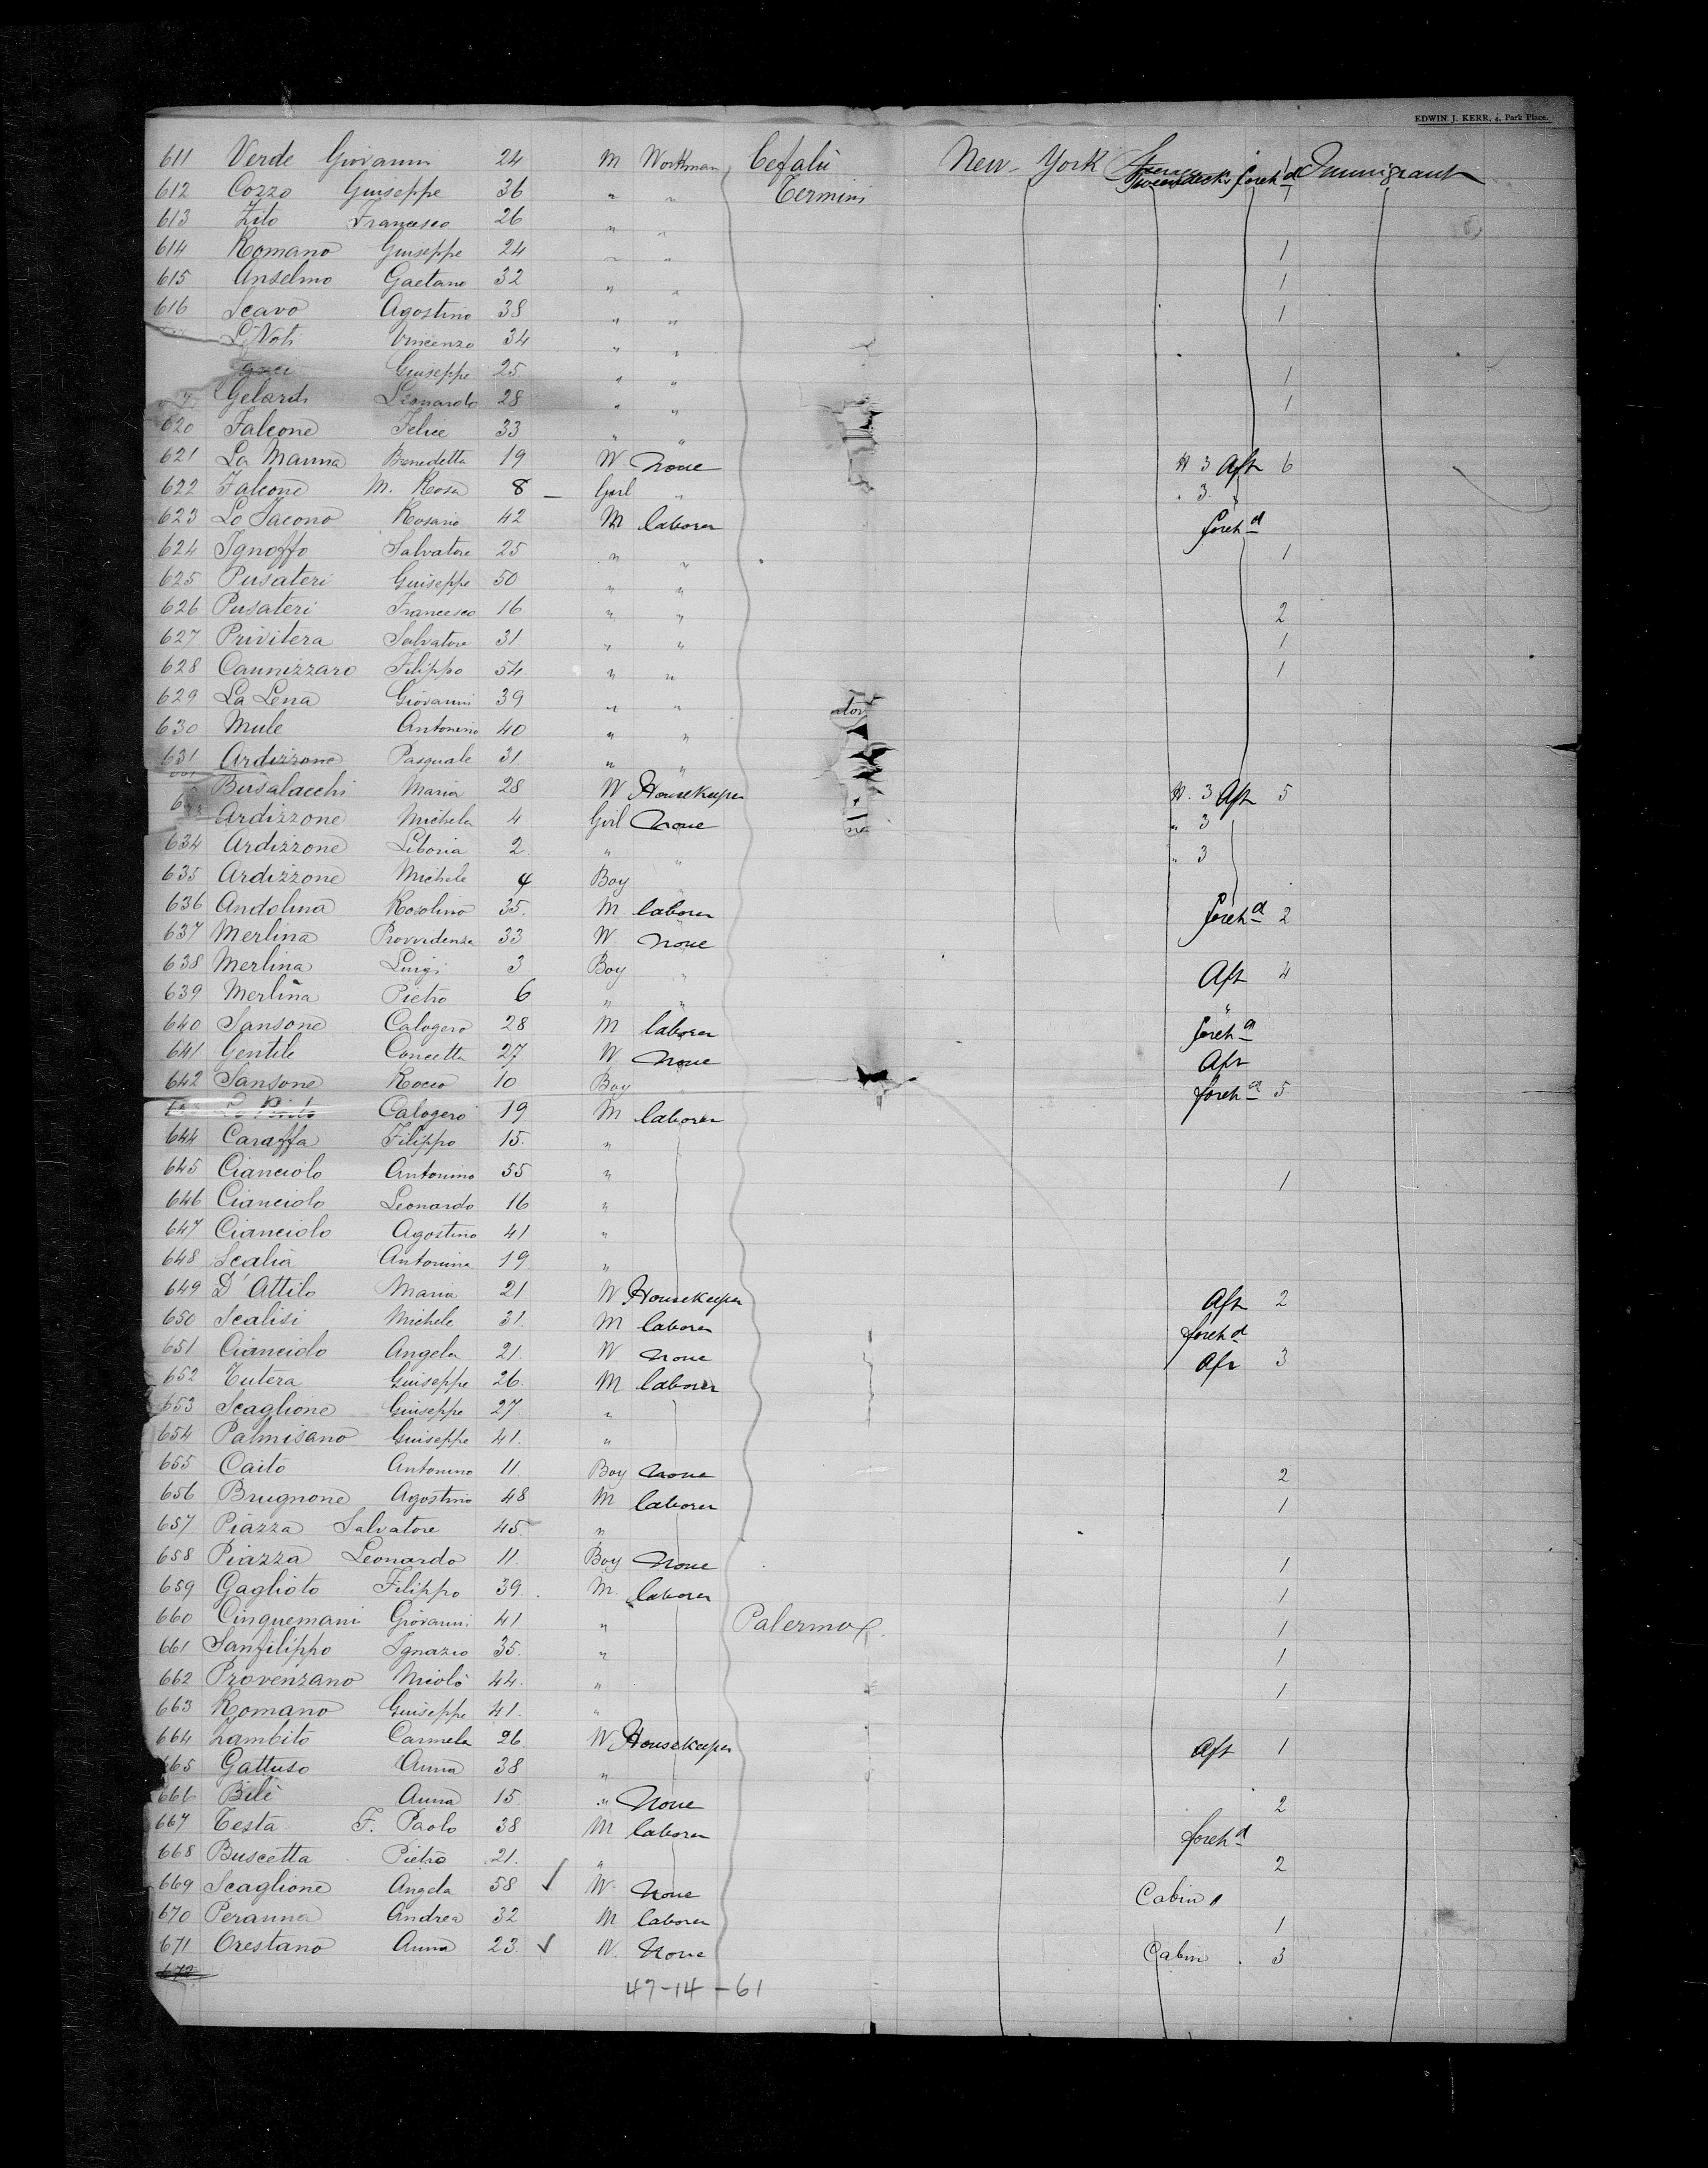 EDWIN J. KERR, 4, Park Place.
611 Verde Giovanni 24 M Workman Cefalù New-York Steerage foreh'd 1 Immigrant
612 Cozzo Giuseppe 36 " " Termini
613 Zito Francesco 26 " "
614 Romano Giuseppe 24 " " 1
615 Anselmo Gaetano 32 " " 1
616 Scavo Agostino 38 " " 1
Vincenzo 34 " "
Giuseppe 25 " " 1
Gelardi Leonardo 28 " " 1
620 Falcone Felice 33 " "
621 La Manna Benedetta 19 W None W 3 Aft 6
622 Falcone M. Rosa 8 – Girl " " 3 "
623 Lo Jacono Rosario 42 M laborer foreh d
624 Ignoffo Salvatore 25 " " 1
625 Pusateri Giuseppe 50 " "
626 Pusateri Francesco 16 " " 2
627 Privitera Salvatore 31 " " 1
628 Cannizzaro Filippo 54 " " 1
629 La Lena Giovanni 39 " "
630 Mule Antonino 40 " "
631 Ardizzone Pasquale 31. " "
Busalacchi Maria 28 W Housekeeper W. 3 Aft 5
Ardizzone Michela 4 Girl None " 3
634 Ardizzone Liboria 2. " " " 3
635 Ardizzone Michele 4 Boy "
636 Andolina Rosolino 35. M laborer foreh d 2
637 Merlina Provvidenza 33 W None
638 Merlina Luigi 3 Boy " Aft 4
639 Merlina Pietro 6 " " "
640 Sansone Calogero 28 M laborer foreh d
641 Gentile Concetta 27 W. None Aft
642 Sansone Rocco 10 Boy foreh d 5
Calogero 19 M laborer
644 Caraffa Filippo 15. "
645 Cianciolo Antonino 55 " 1
646 Cianciolo Leonardo 16 "
647 Cianciolo Agostino 41 "
648 Scalia Antonina 19 "
649 D'Attilo Maria 21 W Housekeeper Aft 2
650 Scalisi Michele 31. M laborer foreh d
651 Cianciolo Angela 21. W. None Aft 3
652 Tutera Giuseppe 26. M laborer
653 Scaglione Giuseppe 27. "
654 Palmisano Giuseppe 41. "
655 Caito Antonino 11. Boy None 2
656 Brugnone Agostino 48 M laborer 1
657 Piazza Salvatore 45. "
658 Piazza Leonardo 11. Boy None 1
659 Gaglioto Filippo 39. M. laborer 1
660 Cinquemani Giovanni 41. " Palermo 1
661 Sanfilippo Ignazio 35. " 1
662 Provenzano Nicolò 44. " 1
663 Romano Giuseppe 41. "
664 Zambito Carmela 26 W Housekeeper Aft 1
665 Gattuso Anna 38 "
666 Bilè Anna 15. " None 2
667 Testa F. Paolo 38 M laborer foreh d
668 Buscetta Pietro 21. " 2
669 Scaglione Angela 58 ✓ W. None Cabin 1
670 Peranna Andrea 32 M laborer 1
671 Orestano Anna 23. ✓ W. None Cabin . 3
672
47-14-61